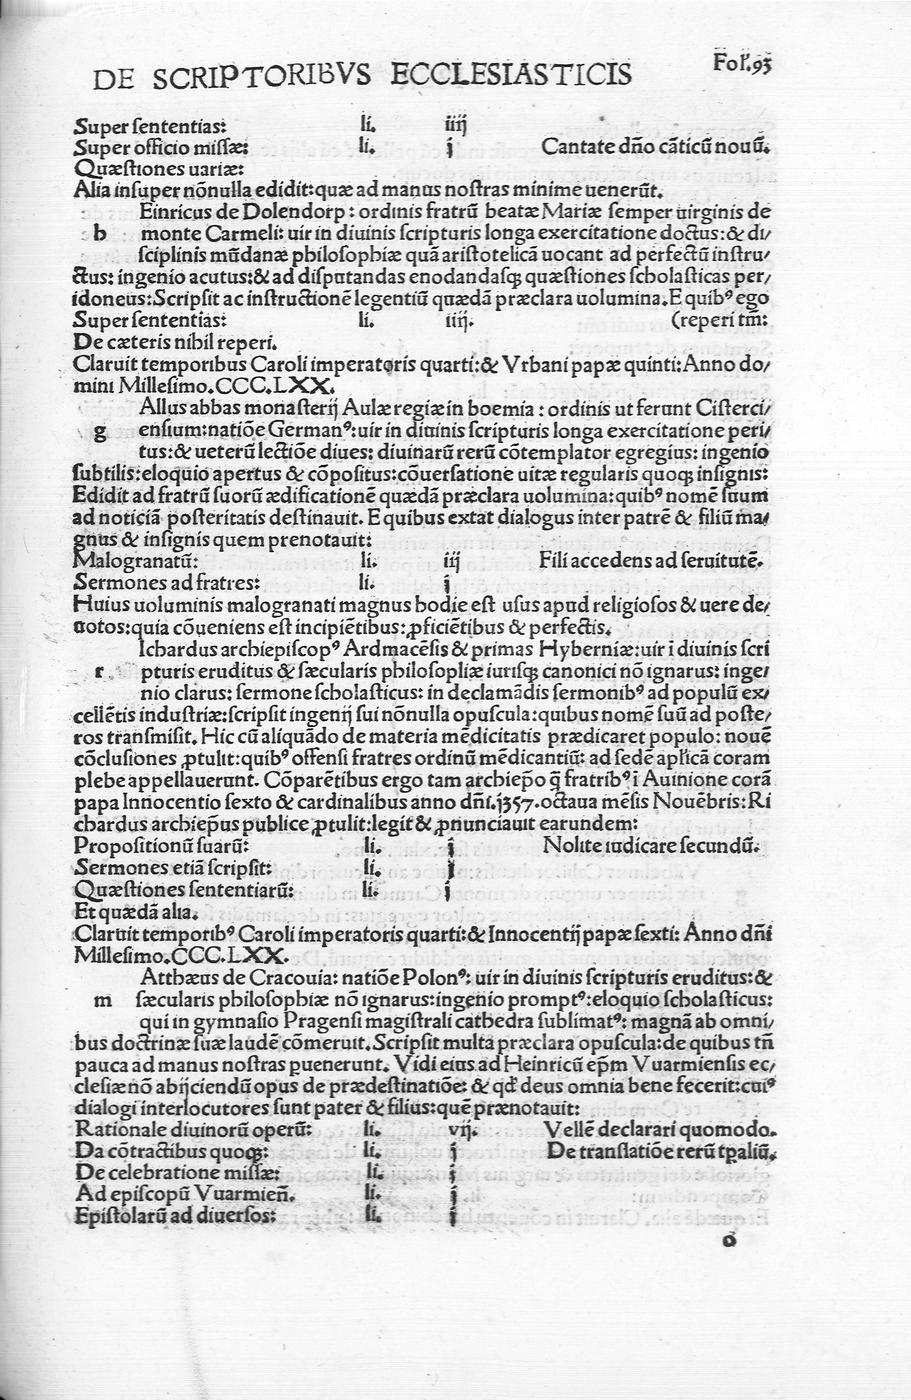 DE SCRIPTORIBVS ECCLESIASTICIS Fol̕.93
Super ſententias: li. iiij
Super officio miſſæ: li. j Cantate dño cãticũ nouũ.
Quæſtiones uariæ:
Alia inſuper nõnulla edidit:quæ ad manus noſtras minime uenerũt.
Einricus de Dolendorp : ordinis fratrũ beatæ Mariæ ſemper uirginis de
h monte Carmeli: uir in diuinis ſcripturis longa exercitatione doctus:& di/
ſciplinis mũdanæ philoſophiæ quã ariſtotelicã uocant ad perfectũ inſtru/
ctus: ingenio acutus:& ad diſputandas enodandaſqꝫ quæſtiones ſcholaſticas per/
idoneus:Scripſit ac inſtructionẽ legentiũ quædã præclara uolumina.E quibꝰ ego
Super ſententias: li. iiij. (reperi tm̃:
De cæteris nihil reperi.
Claruit temporibus Caroli imperatoris quarti:& Vrbani papæ quinti:Anno do/
mini Milleſimo.CCC.LXX.
Allus abbas monaſterij Aulæ regiæ in boemia : ordinis ut ferunt Ciſterci/
g enſium:natiõe Germanꝰ:uir in diuinis ſcripturis longa exercitatione peri/
tus:& ueterũ lectiõe diues: diuinarũ rerũ cõtemplator egregius: ingenio
ſubtilis:eloquio apertus & cõpoſitus:cõuerſatione uitæ regularis quoqꝫ inſignis:
Edidit ad fratrũ ſuorũ ædificationẽ quædã præclara uolumina:quibꝰ nomẽ ſuum
ad noticiã poſteritatis deſtinauit. E quibus extat dialogus inter patrẽ & filiũ ma/
gnus & inſignis quem prenotauit:
Malogranatũ: li. iij Fili accedens ad ſeruitutẽ.
Sermones ad fratres: li. j
Huius uoluminis malogranati magnus hodie eſt uſus apud religioſos & uere de/
uotos:quia cõueniens eſt incipiẽtibus:ꝓficiẽtibus & perfectis.
Ichardus archiepiſcopꝰ Ardmacẽſis & primas Hyberniæ:uir i diuinis ſcri
r pturis eruditus & ſæcularis philoſopliæ iuriſqꝫ canonici nõ ignarus: inge/
nio clarus: ſermone ſcholaſticus: in declamãdis ſermonibꝰ ad populũ ex/
cellẽtis induſtriæ:ſcripſit ingenij ſui nõnulla opuſcula:quibus nomẽ ſuũ ad poſte/
ros tranſmiſit. Hic cũ aliquãdo de materia mẽdicitatis prædicaret populo: nouẽ
cõcluſiones ꝓtulit:quibꝰ offenſi fratres ordinũ mẽdicantiũ: ad ſedẽ apl̕icã coram
plebe appellauerunt. Cõparẽtibus ergo tam archiep̃o q̃ fratribꝰ ĩ Auinione corã
papa Innocentio ſexto & cardinalibus anno dñi.1357.octaua mẽſis Nouẽbris:Ri
chardus archiep̃us publice ꝓtulit:legit & ꝓnunciauit earundem:
Propoſitionũ ſuarũ: li. j Nolite iudicare ſecundũ.
Sermones etiã ſcripſit: li. j
Quæſtiones ſententiarũ: li. j
Et quædã alia.
Claruit temporibꝰ Caroli imperatoris quarti:& Innocentij papæ ſexti: Anno dñi
Milleſimo.CCC.LXX.
Atthæus de Cracouia: natiõe Polonꝰ: uir in diuinis ſcripturis eruditus:&
m ſæcularis philoſophiæ nõ ignarus:ingenio promptꝰ:eloquio ſcholaſticus:
qui in gymnaſio Pragenſi magiſtrali cathedra ſublimatꝰ: magnã ab omni/
bus doctrinæ ſuæ laudẽ cõmeruit.Scripſit multa præclara opuſcula:de quibus tñ
pauca ad manus noſtras puenerunt. Vidi eius ad Heinricũ ep̃m Vuarmienſis ec/
cleſiæ nõ abijciendũ opus de prædeſtinatiõe: & qd̕ deus omnia bene fecerit:cuiꝰ
dialogi interlocutores ſunt pater & filius:quẽ prænotauit:
Rationale diuinorũ operũ: li. vij. Vellẽ declarari quomodo.
Da cõtractibus quoqꝫ: li. j De tranſlatiõe rerũ tꝑaliũ.
De celebratione miſſæ: li. j
Ad epiſcopũ Vuarmieñ. li. j
Epiſtolarũ ad diuerſos: li. j
o